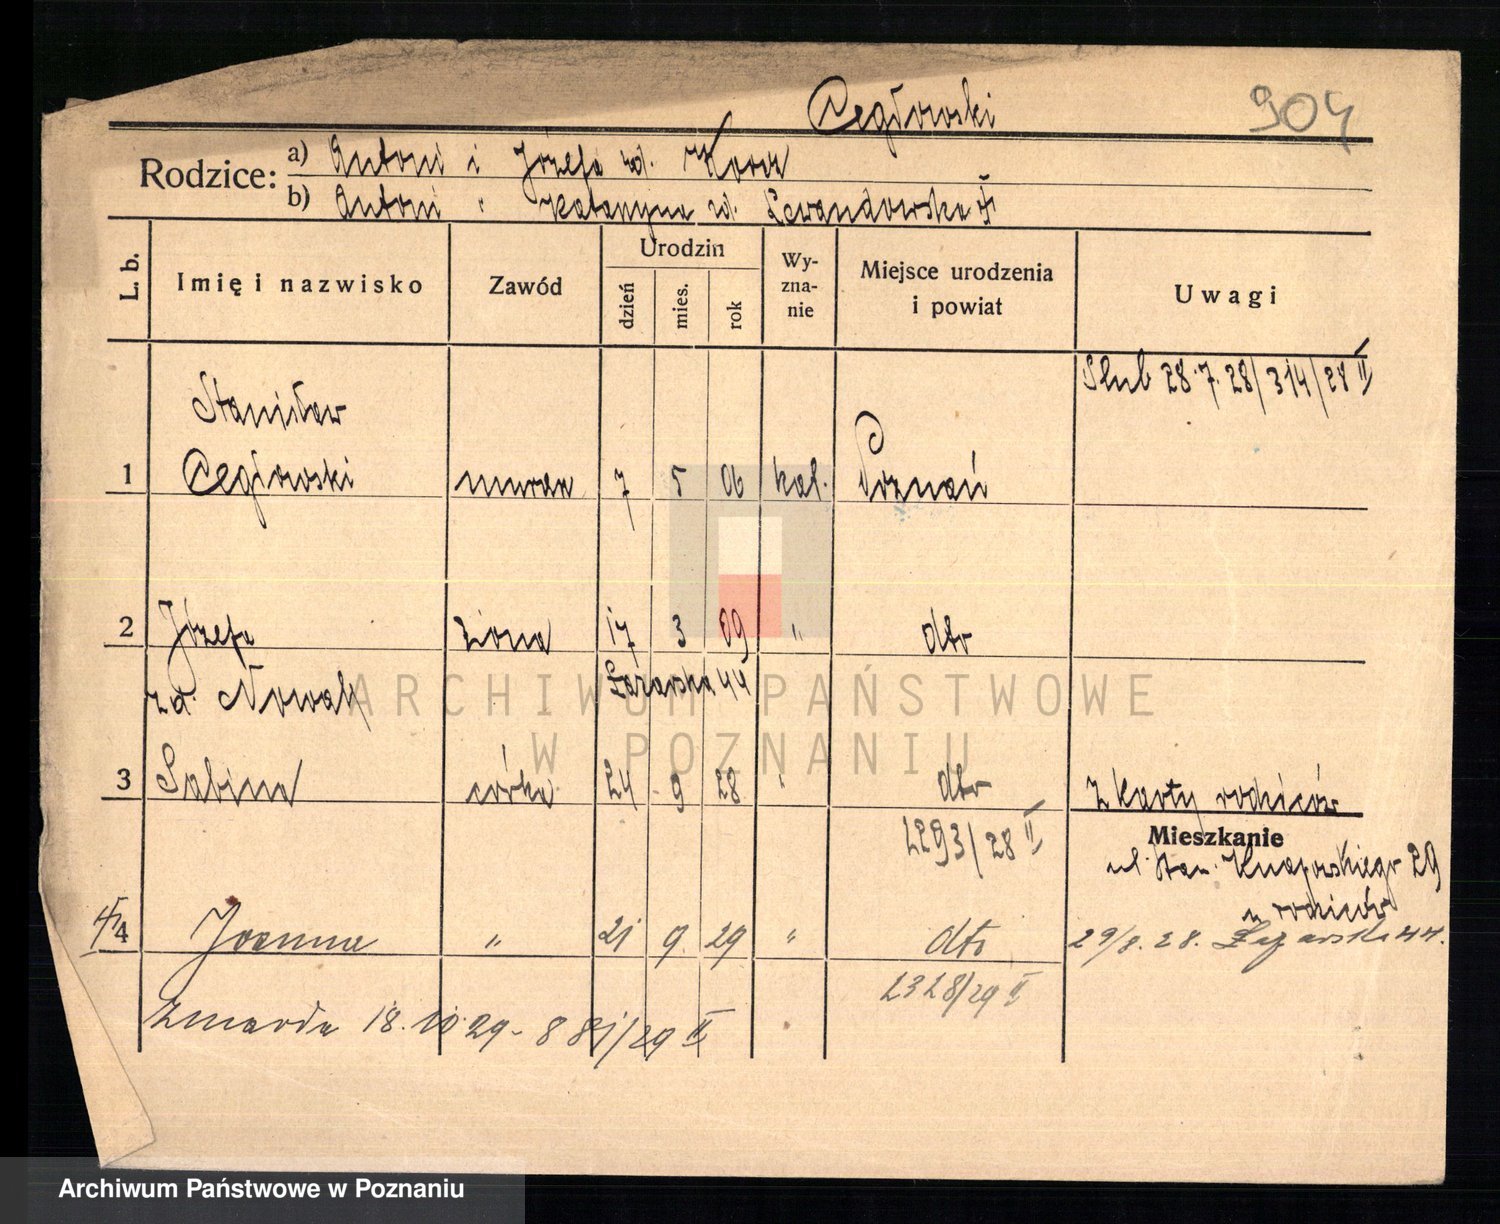 Cegłowski 904
Rodzice: a) Antoni i Józefa zd.
b) Antoni " Katarzyna zd. Lewandowska
L. b. Imię i nazwisko Zawód Urodzin Wyznanie Miejsce urodzenia i powiat Uwagi
dzień mies. rok
Ślub 28.7.28/314/28 II
Stanisław
1 Cegłowski murarz 7 5 06 kat. Poznań
2 Józefa żona 17 3 09 " dto
zd. Nowak Łazarska 44
ARCHIWUM PAŃSTWOWE
W POZNANIU
3 Sabina córka 24 9 28 " dto z karty rodziców
2293/28 II Mieszkanie
ul. Stan. Knapowskiego 29
u rodziców
4 Joanna " 21 9. 29 " dto 29/8.28. Łazarska 44.
2328/29 II
zmarła 18.10.29 - 881/29 II
Archiwum Państwowe w Poznaniu